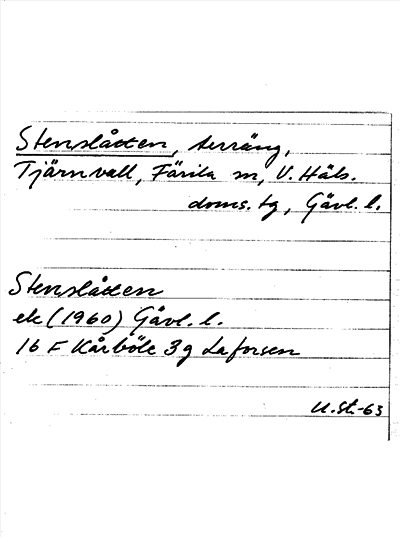 Stenslåtten, terräng,
Tjärnvall, Färila sn, V. Häls.
doms. tg, Gävl. l.
Stenslåtten
ek (1960) Gävl. l.
16 F Kårböle 3 g Laforsen
U.St.-63